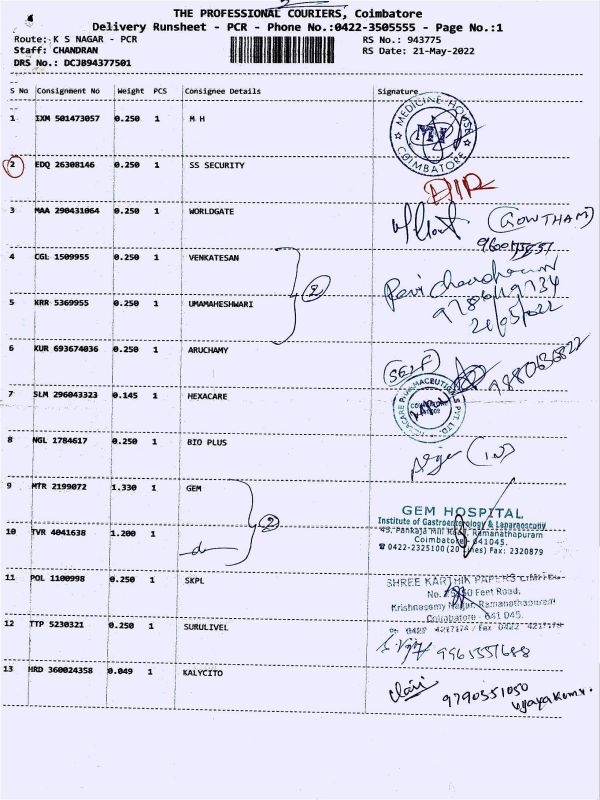 THE PROFESSIONAL COURIERS, Coimbatore
Delivery Runsheet - PCR - Phone No.:0422-3505555 - Page No.:1
Route: K S NAGAR - PCR RS No.: 943775
Staff: CHANDRAN RS Date: 21-May-2022
DRS No.: DCJ894377501
S No Consignment No Weight PCS Consignee Details Signature
1 IXM 501473057 0.250 1 M H
MEDICINE HOUSE COIMBATORE
2 EDQ 26308146 0.250 1 SS SECURITY
3 MAA 290431064 0.250 1 WORLDGATE
(GOWTHAM)
4 CGL 1509955 0.250 1 VENKATESAN
2
5 KRR 5369955 0.250 1 UMAMAHESHWARI
21/05/2022
6 KUR 693674036 0.250 1 ARUCHAMY
(SELF)
7 SLM 296043323 0.145 1 HEXACARE
8 NGL 1784617 0.250 1 BIO PLUS
9 MTR 2199072 1.330 1 GEM
2
GEM HOSPITAL
Institute of Gastroenterology & Laparoscopy
45, Pankaja Mill Road, Ramanathapuram
Coimbatore - 641045.
☎ 0422-2325100 (20 Lines) Fax: 2320879
10 TVR 4041638 1.200 1
11 POL 1100998 0.250 1 SKPL
SHREE KARTHIK PAPERS LIMITED
Feet Road,
Krishnasamy Nagar, Ramanathapuram
Coimbatore - 641 045.
12 TTP 5230321 0.250 1 SURULIVEL
13 HRD 360024358 0.049 1 KALYCITO
9790551050